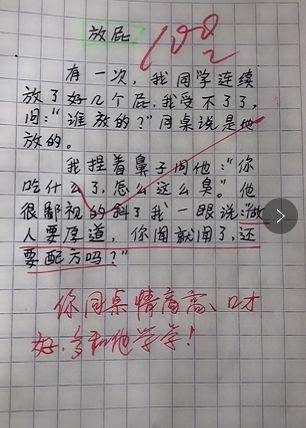 放屁
100
有一次,我同学连续
放了好几个屁,我受不了了,
问:“谁放的?”同桌说是他
放的。
我捏着鼻子问他:“你
吃什么了,怎么这么臭。”他
很鄙视的斜了我一眼说:“做
人要厚道,你闻就闻了,还
要配方吗?”
你同桌情商高、口才
好,多和他学学!